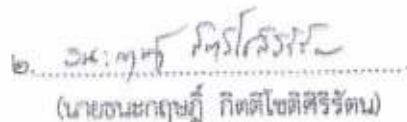 ๒.
(นายธนะกฤษฎิ์ กิตติโชติศิริรัตน)